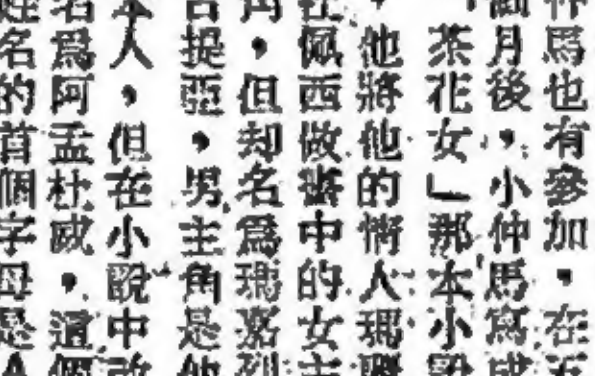 仲馬也有參加，在五
個月後，小仲馬寫成
「茶花女」那本小說
，他將他的情人瑪
佩西做書中的女主
角，但却名爲瑪嘉烈
提亞，男主角是他
本人，但在小說中改
名爲阿孟杜威，這個
姓名的首個字母是A